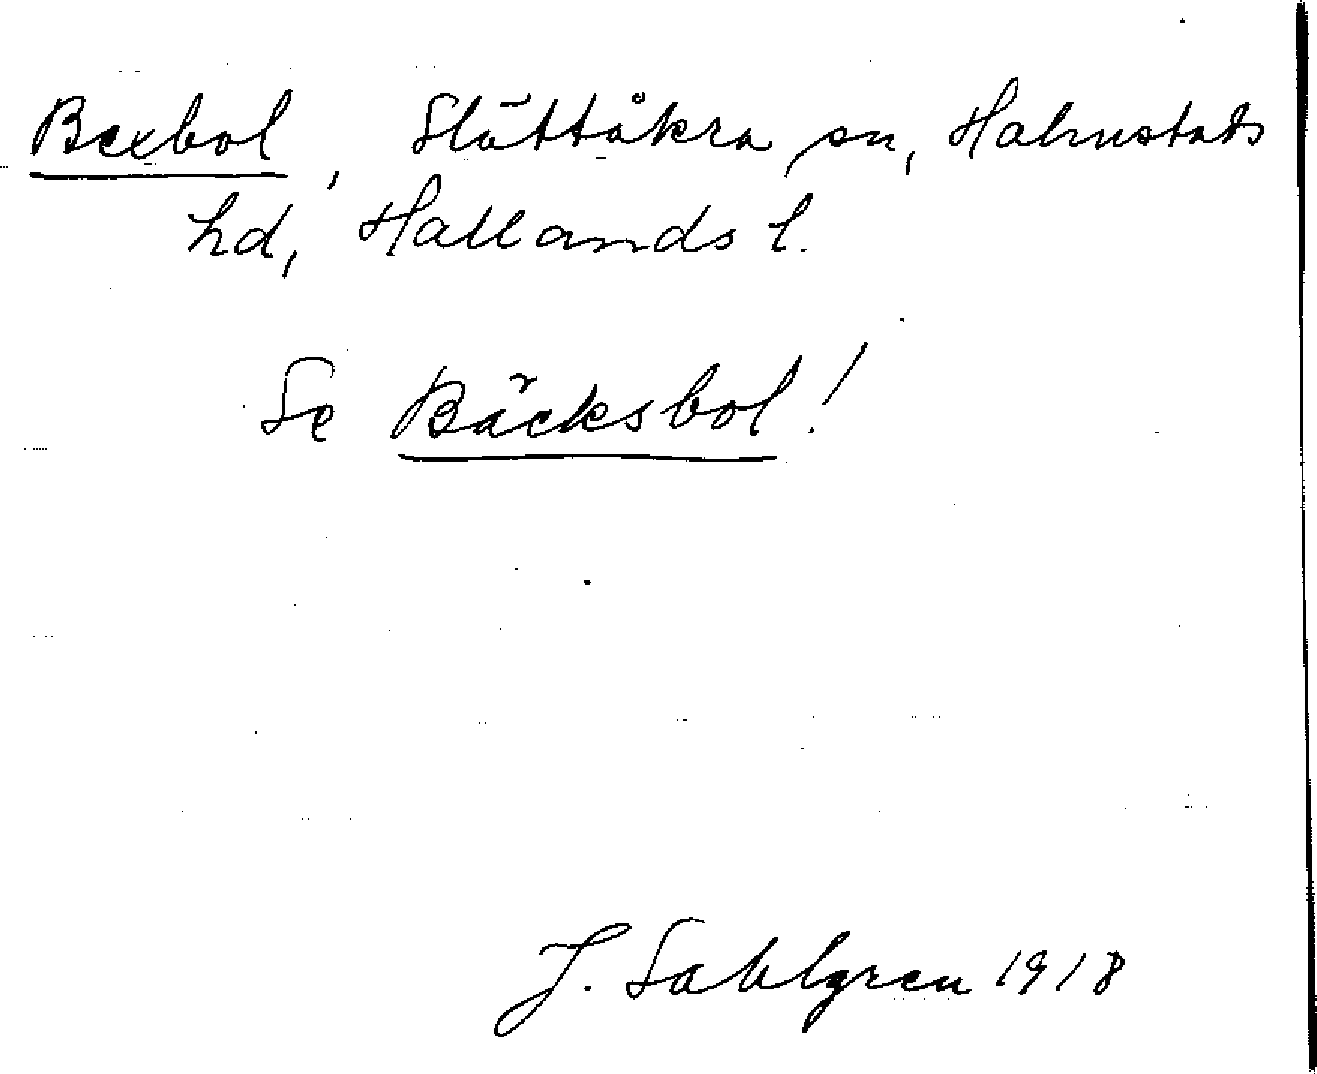 Bexbol, Slättåkra sn, Halmstads
hd, Hallands l.
Se Bäcksbol!
J. Sahlgren 1918